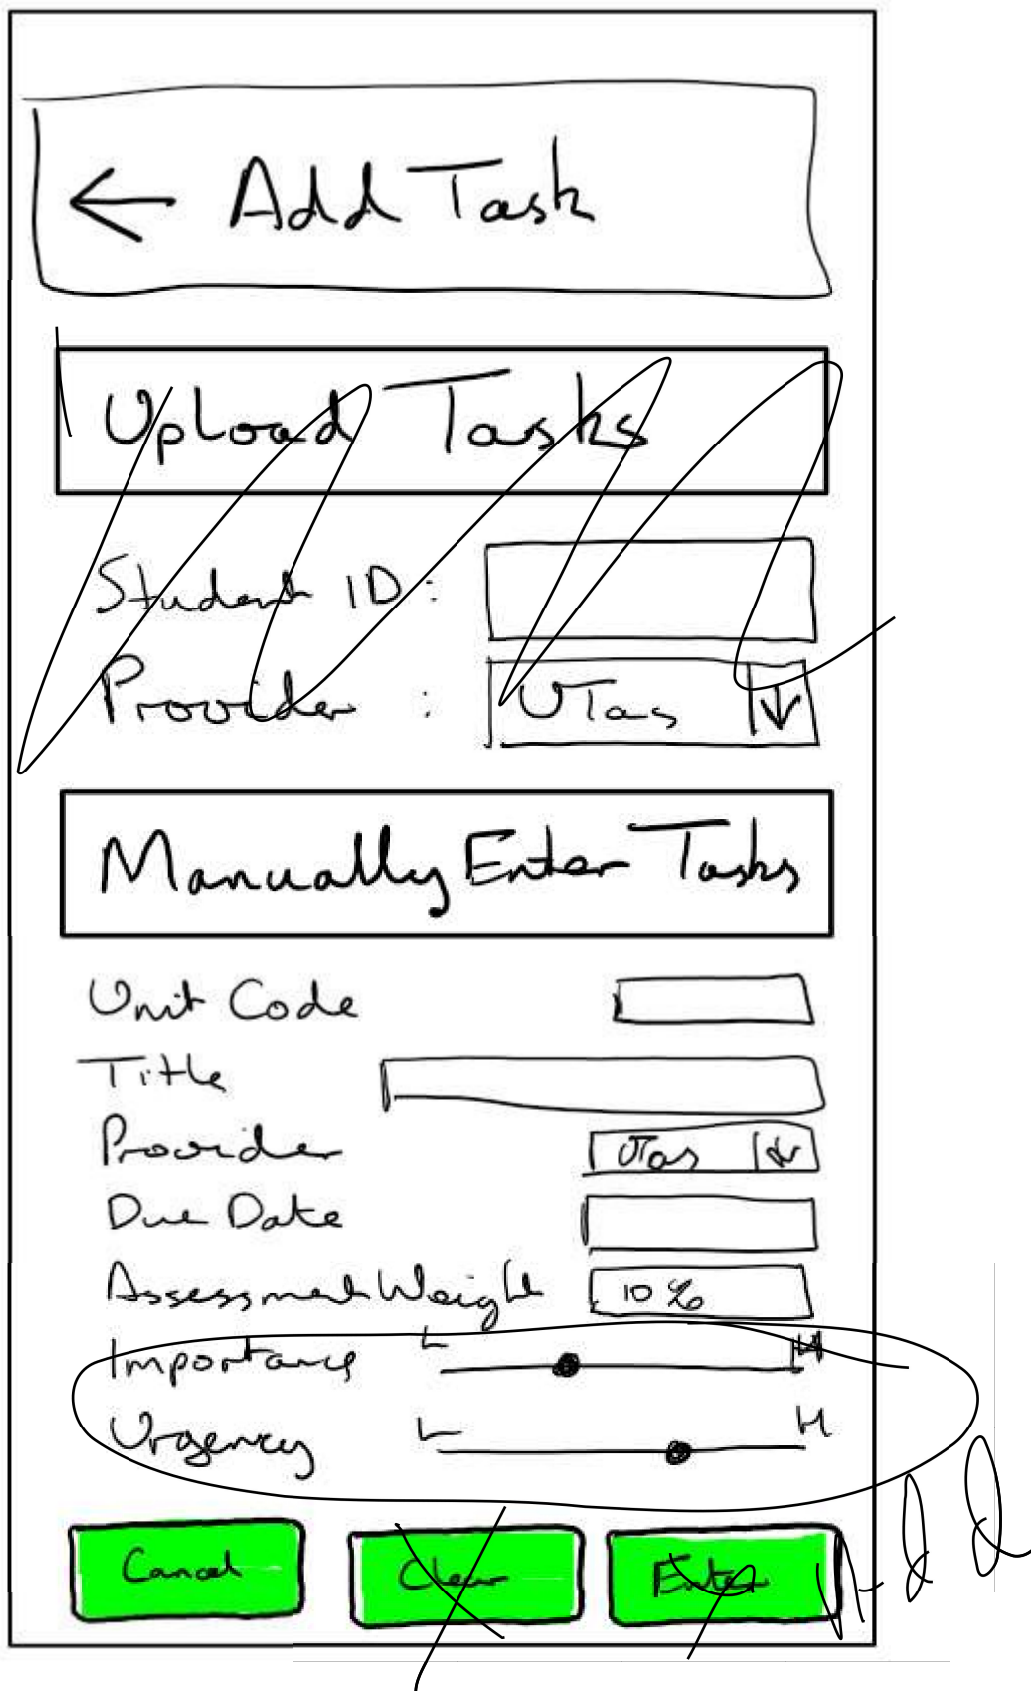 ← Add Task
Upload Tasks
Student ID:
Provider : UTas ↓
Manually Enter Tasks
Unit Code
Title
Provider UTas ↓
Due Date
Assessment Weight 10%
Importance L H
Urgency L H
Cancel Clear Enter Add